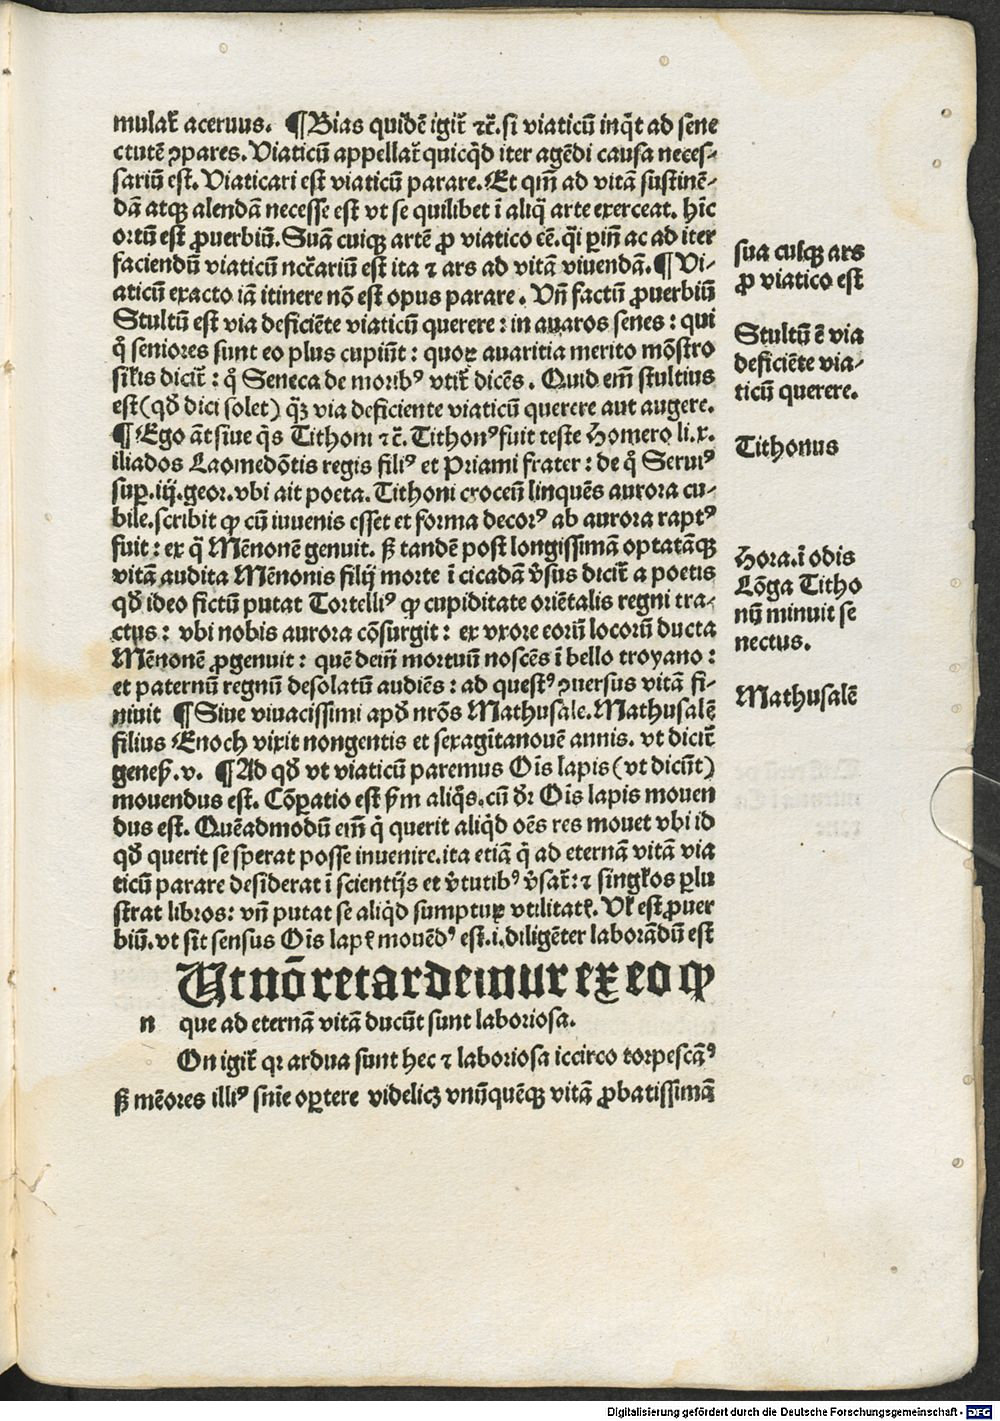 mulať aceruus. ¶Bias quidē igiť ⁊č. si viaticū inq̇t ad sene
ctutē ꝯpares. Viaticū appellať quicq̇d iter agēdi causa neces⸗
sariū est. Viaticari est viaticū parare. Et qm̄ ad vitā sustinē⸗
dā atqꝫ alendā necesse est vt se quilibet ī aliq̄ arte exerceat. hīc
ortū est ꝓuerbiū. Suā cuiqꝫ artē ꝓ viatico eē. q̇i ꝑin̄ ac ad iter
faciendū viaticū nc̄cariū est ita ⁊ ars ad vitā viuendā. ¶Vi⸗
aticū exacto iā itinere nō est opus parare. Vn̄ factū ꝓuerbiū
Stultū est via deficiēte viaticū querere: in auaros senes: qui
q̊ seniores sunt eo plus cupiūt: quoꝝ auaritia merito mōstro
sil̄is diciť: q̊ Seneca de moribꝰ vtiť dicēs. Quid em̄ stultius
est (qd̄ dici solet) q̄ꝫ via deficiente viaticū querere aut augere.
¶Ego āt siue q̇s Tithoni ⁊č. Tithonꝰ fuit teste Homero li. x.
iliados Laomedōtis regis filiꝰ et Priami frater: de q̊ Seruiꝰ
suꝑ. iij. geor. vbi ait poeta. Tithoni croceū linquēs aurora cu⸗
bile. scribit ꝙ cū iuuenis esset et forma decorꝰ ab aurora raptꝰ
fuit: ex q̄ Mēnonē genuit. sꝫ tandē post longissimā optatāqꝫ
vitā audita Mēnonis filij morte ī cicadā v̄sus diciť a poetis
qd̄ ideo fictū putat Tortelliꝰ ꝙ cupiditate oriētalis regni tra⸗
ctus: vbi nobis aurora cōsurgit: ex vxore eorū locorū ducta
Mēnonē ꝓgenuit: quē deīn mortuū noscēs ī bello troyano:
et paternū regnū desolatū audiēs: ad questꝰ ꝯuersus vitā fi⸗
niuit ¶Siue viuacissimi apd̄ nr̄os Mathusale. Mathusalē
filius Enoch vixit nongentis et sexagītanouē annis. vt diciť
genes̄. v. ¶Ad qd̄ vt viaticū paremus Oīs lapis (vt dicūt)
mouendus est. Cōꝑatio est ẜm aliq̇s. cū dr̄ Oīs lapis mouen
dus est. Quēadmodū em̄ q̇ querit aliq̇d oēs res mouet vbi id
qd̄ querit se sperat posse inuenire. ita etiā q̇ ad eternā vitā via
ticū parare desiderat ī scientijs et v̄tutibꝰ v̄sať: ⁊ singl̄os ꝑlu
strat libros: vn̄ putat se aliq̇d sumptuꝝ vtilitať. Vl̄ est ꝓuer
biū. vt sit sensus Oīs lapꝭ mouēdꝰ est. i. diligēter laborādū est
Ut nō retardemur ex eo ꝙ
n que ad eternā vitā ducūt sunt laboriosa.
On igiť qr ardua sunt hec ⁊ laboriosa iccirco torpescāꝰ
sꝫ mēores illiꝰ sn̄ie oꝑtere videlicꝫ vnūquēqꝫ vitā ꝓbatissimā
sua cuiqꝫ ars
ꝓ viatico est
Stultū ē via
deficiēte via⸗
ticū querere.
Tithonus
Hora. ī odis
Lōga Titho
nū minuit se
nectus.
Mathusalē
Digitalisierung gefördert durch die Deutsche Forschungsgemeinschaft - DFG